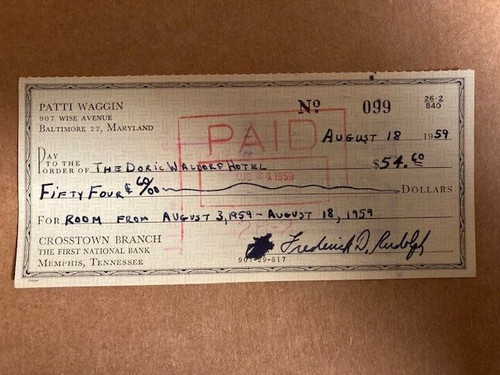 PATTI WAGGIN
907 WISE AVENUE
BALTIMORE 22, MARYLAND
No 099
26-2
840
AUGUST 18 1959
PAY
TO THE
ORDER OF THE DORIC WALDORF HOTEL $54.60
FIFTY FOUR & 60/00 DOLLARS
FOR ROOM FROM AUGUST 3, 1959 - AUGUST 18, 1959
CROSSTOWN BRANCH
THE FIRST NATIONAL BANK
MEMPHIS, TENNESSEE
Frederick D. Rudolph
PAID
4 1959